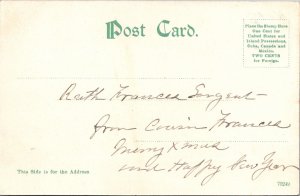 Post Card.
Place the Stamp Here
One Cent for
United States and
Island Possessions,
Cuba, Canada and
Mexico.
TWO CENTS
for Foreign.
Ruth Frances Sargent
from Cousin Frances
Merry Xmas
and Happy New Year
This Side is for the Address